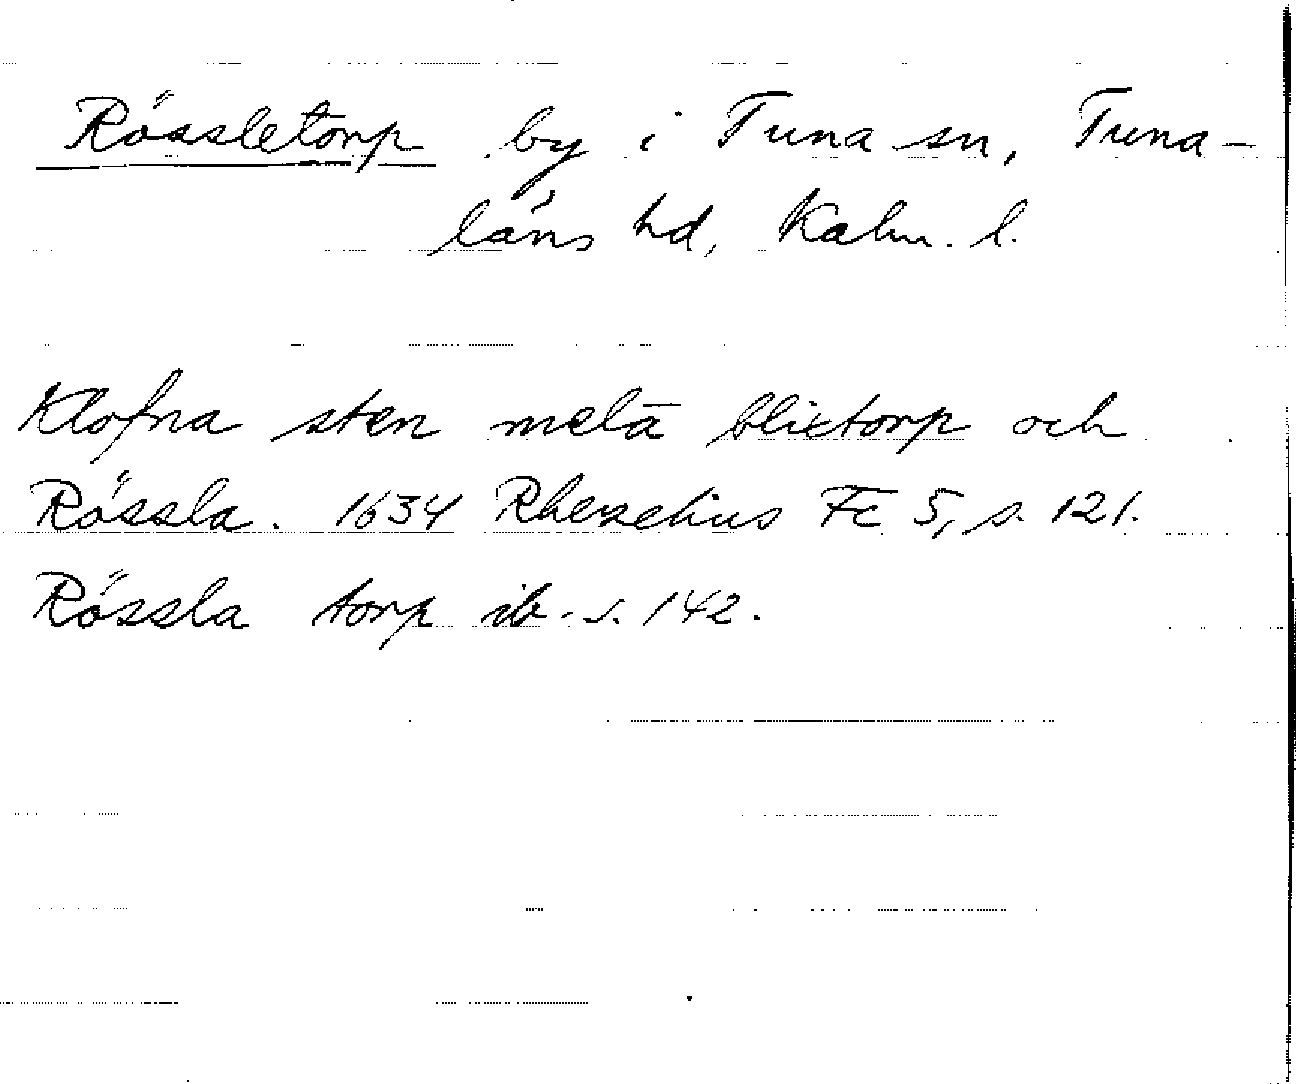 Rössletorp by i Tuna sn, Tuna-
läns hd, Kalm. l.
Klofna sten melā blixtorp och
Rössla. 1634 Rhezelius Fc 5, s. 121.
Rössla torp ib. s. 142.